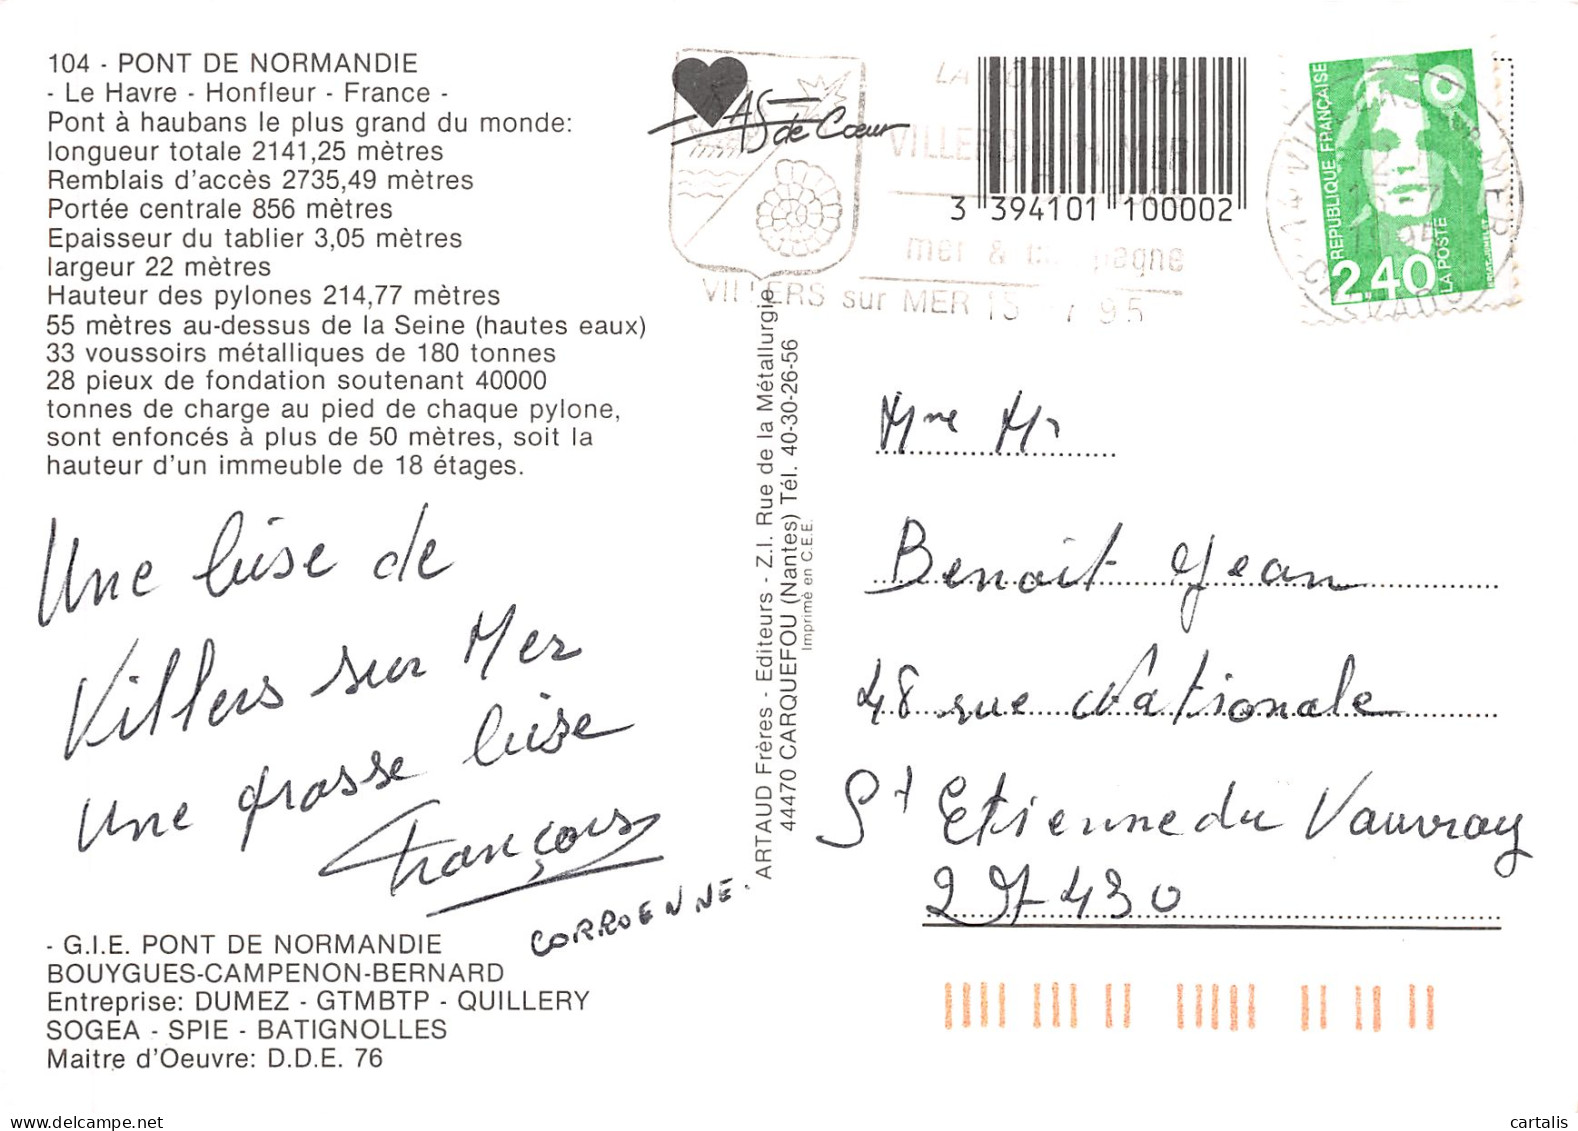 104 - PONT DE NORMANDIE
- Le Havre - Honfleur - France -
Pont à haubans le plus grand du monde:
longueur totale 2141,25 mètres
Remblais d'accès 2735,49 mètres
Portée centrale 856 mètres
Epaisseur du tablier 3,05 mètres
largeur 22 mètres
Hauteur des pylones 214,77 mètres
55 mètres au-dessus de la Seine (hautes eaux)
33 voussoirs métalliques de 180 tonnes
28 pieux de fondation soutenant 40000
tonnes de charge au pied de chaque pylone,
sont enfoncés à plus de 50 mètres, soit la
hauteur d'un immeuble de 18 étages.
Une bise de
Villers sur Mer
Une grosse bise
François
CORROENNE.
- G.I.E. PONT DE NORMANDIE
BOUYGUES-CAMPENON-BERNARD
Entreprise: DUMEZ - GTMBTP - QUILLERY
SOGEA - SPIE - BATIGNOLLES
Maitre d'Oeuvre: D.D.E. 76
ARTAUD Frères - Editeurs - Z.I. Rue de la Métallurgie
44470 CARQUEFOU (Nantes) Tél. 40-30-26-56
Imprimé en C.E.E.
AS de Cœur
VILLERS MER
mer & campagne
VILLERS sur MER 15 7 95
3 394101 100002
REPUBLIQUE FRANÇAISE
2,40
LA POSTE
Mme Mr
Benoit Jean
48 rue Nationale
St Etienne du Vauvray
27430
cartalis
www.delcampe.net